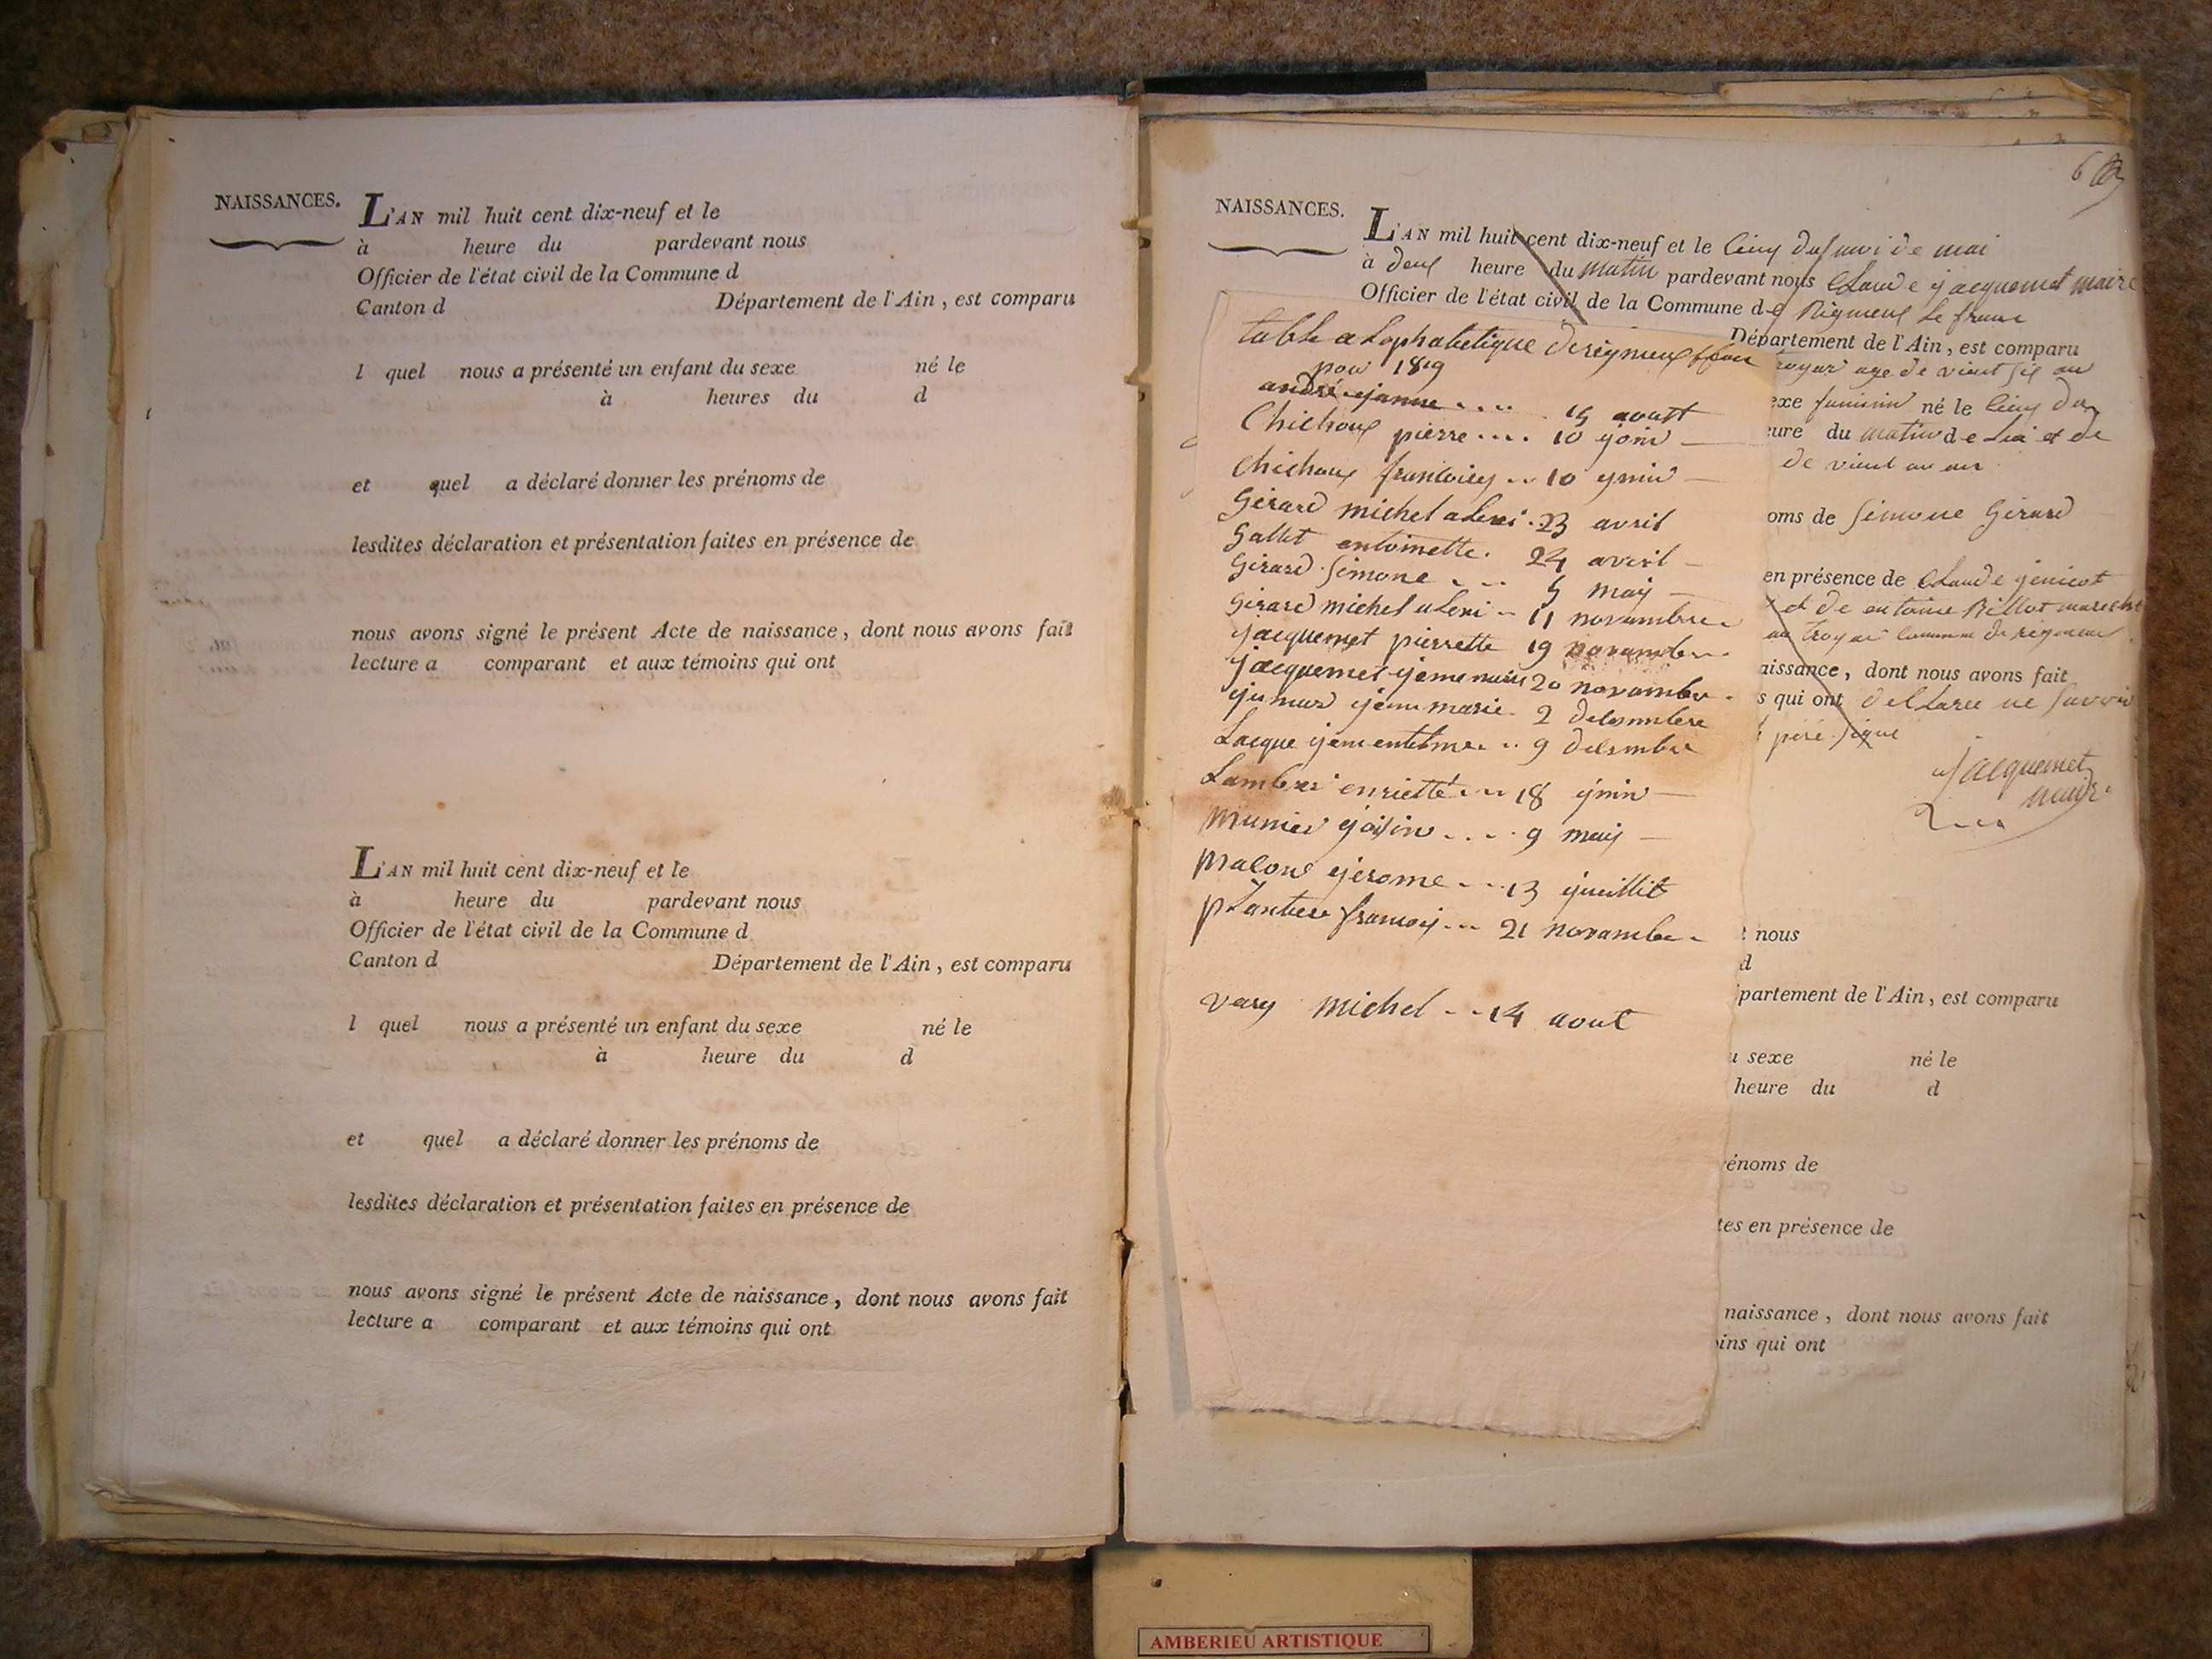 NAISSANCES.
L'AN mil huit cent dix-neuf et le
à heure du pardevant nous
Officier de l'état civil de la Commune d
Canton d Département de l'Ain, est comparu
l quel nous a présenté un enfant du sexe né le
à heures du d
et quel a déclaré donner les prénoms de
lesdites déclaration et présentation faites en présence de
nous avons signé le présent Acte de naissance, dont nous avons fait
lecture a comparant et aux témoins qui ont
L'AN mil huit cent dix-neuf et le
à heure du pardevant nous
Officier de l'état civil de la Commune d
Canton d Département de l'Ain, est comparu
l quel nous a présenté un enfant du sexe né le
à heure du d
et quel a déclaré donner les prénoms de
lesdites déclaration et présentation faites en présence de
nous avons signé le présent Acte de naissance, dont nous avons fait
lecture a comparant et aux témoins qui ont
NAISSANCES.
L'AN mil huit cent dix-neuf et le cinq du moi de mai
à deux heure du matin pardevant nous Claude jacquemet maire
Officier de l'état civil de la Commune de Rigneux le franc
Département de l'Ain, est comparu
age de vient
exe feminin né le cinq du
eure du matin de lui et de
de vient
oms de simone Girard
en présence de Claude jenicot
et de entoine Billot
Commune de rigneux
aissance, dont nous avons fait
s qui ont declaree ne savoir
pere signe
jacquemet
maire
table alophabetique de rigneux
pour 1819
andré janne .... 15 aoust
Chichoux pierre .... 10 join
Chichoux francoise .. 10 join
Girard michel alexi . 23 avril
Gallet entoinette . 24 avril
Girard simone ... 5 may
Girard michel alexi .. 11 novambre
jacquemet pierrette 19 novambre
jacquemet 20 novambre
marie . 2 desambre
Lacque .. 9 desambre
Lambert enriette ... 18 join
munier .... 9 may
jerome ... 13 jueillit
plantier francois ... 21 novambre
vary michel .. 14 aout
t nous
d
partement de l'Ain, est comparu
u sexe né le
heure du d
énoms de
tes en présence de
naissance, dont nous avons fait
ins qui ont
AMBERIEU ARTISTIQUE